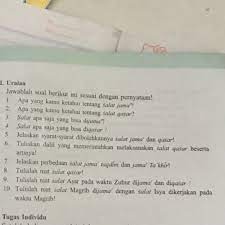 I. Uraian
Jawablah soal berikut ini sesuai dengan pernyataan!
1. Apa yang kamu ketahui tentang salat jama'?
2. Apa yang kamu ketahui tentang salat qasar?
3. Salat apa saja yang bisa dijama'?
4. Salat apa saja yang bisa diqasar?
5. Jelaskan syarat-syarat dibolehkannya salat jama' dan qasar!
6. Tuliskan dalil yang memerintahkan melaksanakan salat qasar beserta
artinya!
7. Jelaskan perbedaan salat jama' taqdim dan jama' Ta'khir!
8. Tulislah niat salat qasar!
9. Tulislah niat salat Asar pada waktu Zuhur dijama' dan diqasar!
10. Tulislah niat salat Magrib dijama' dengan salat Isya dikerjakan pada
waktu Magrib!
Tugas Individu